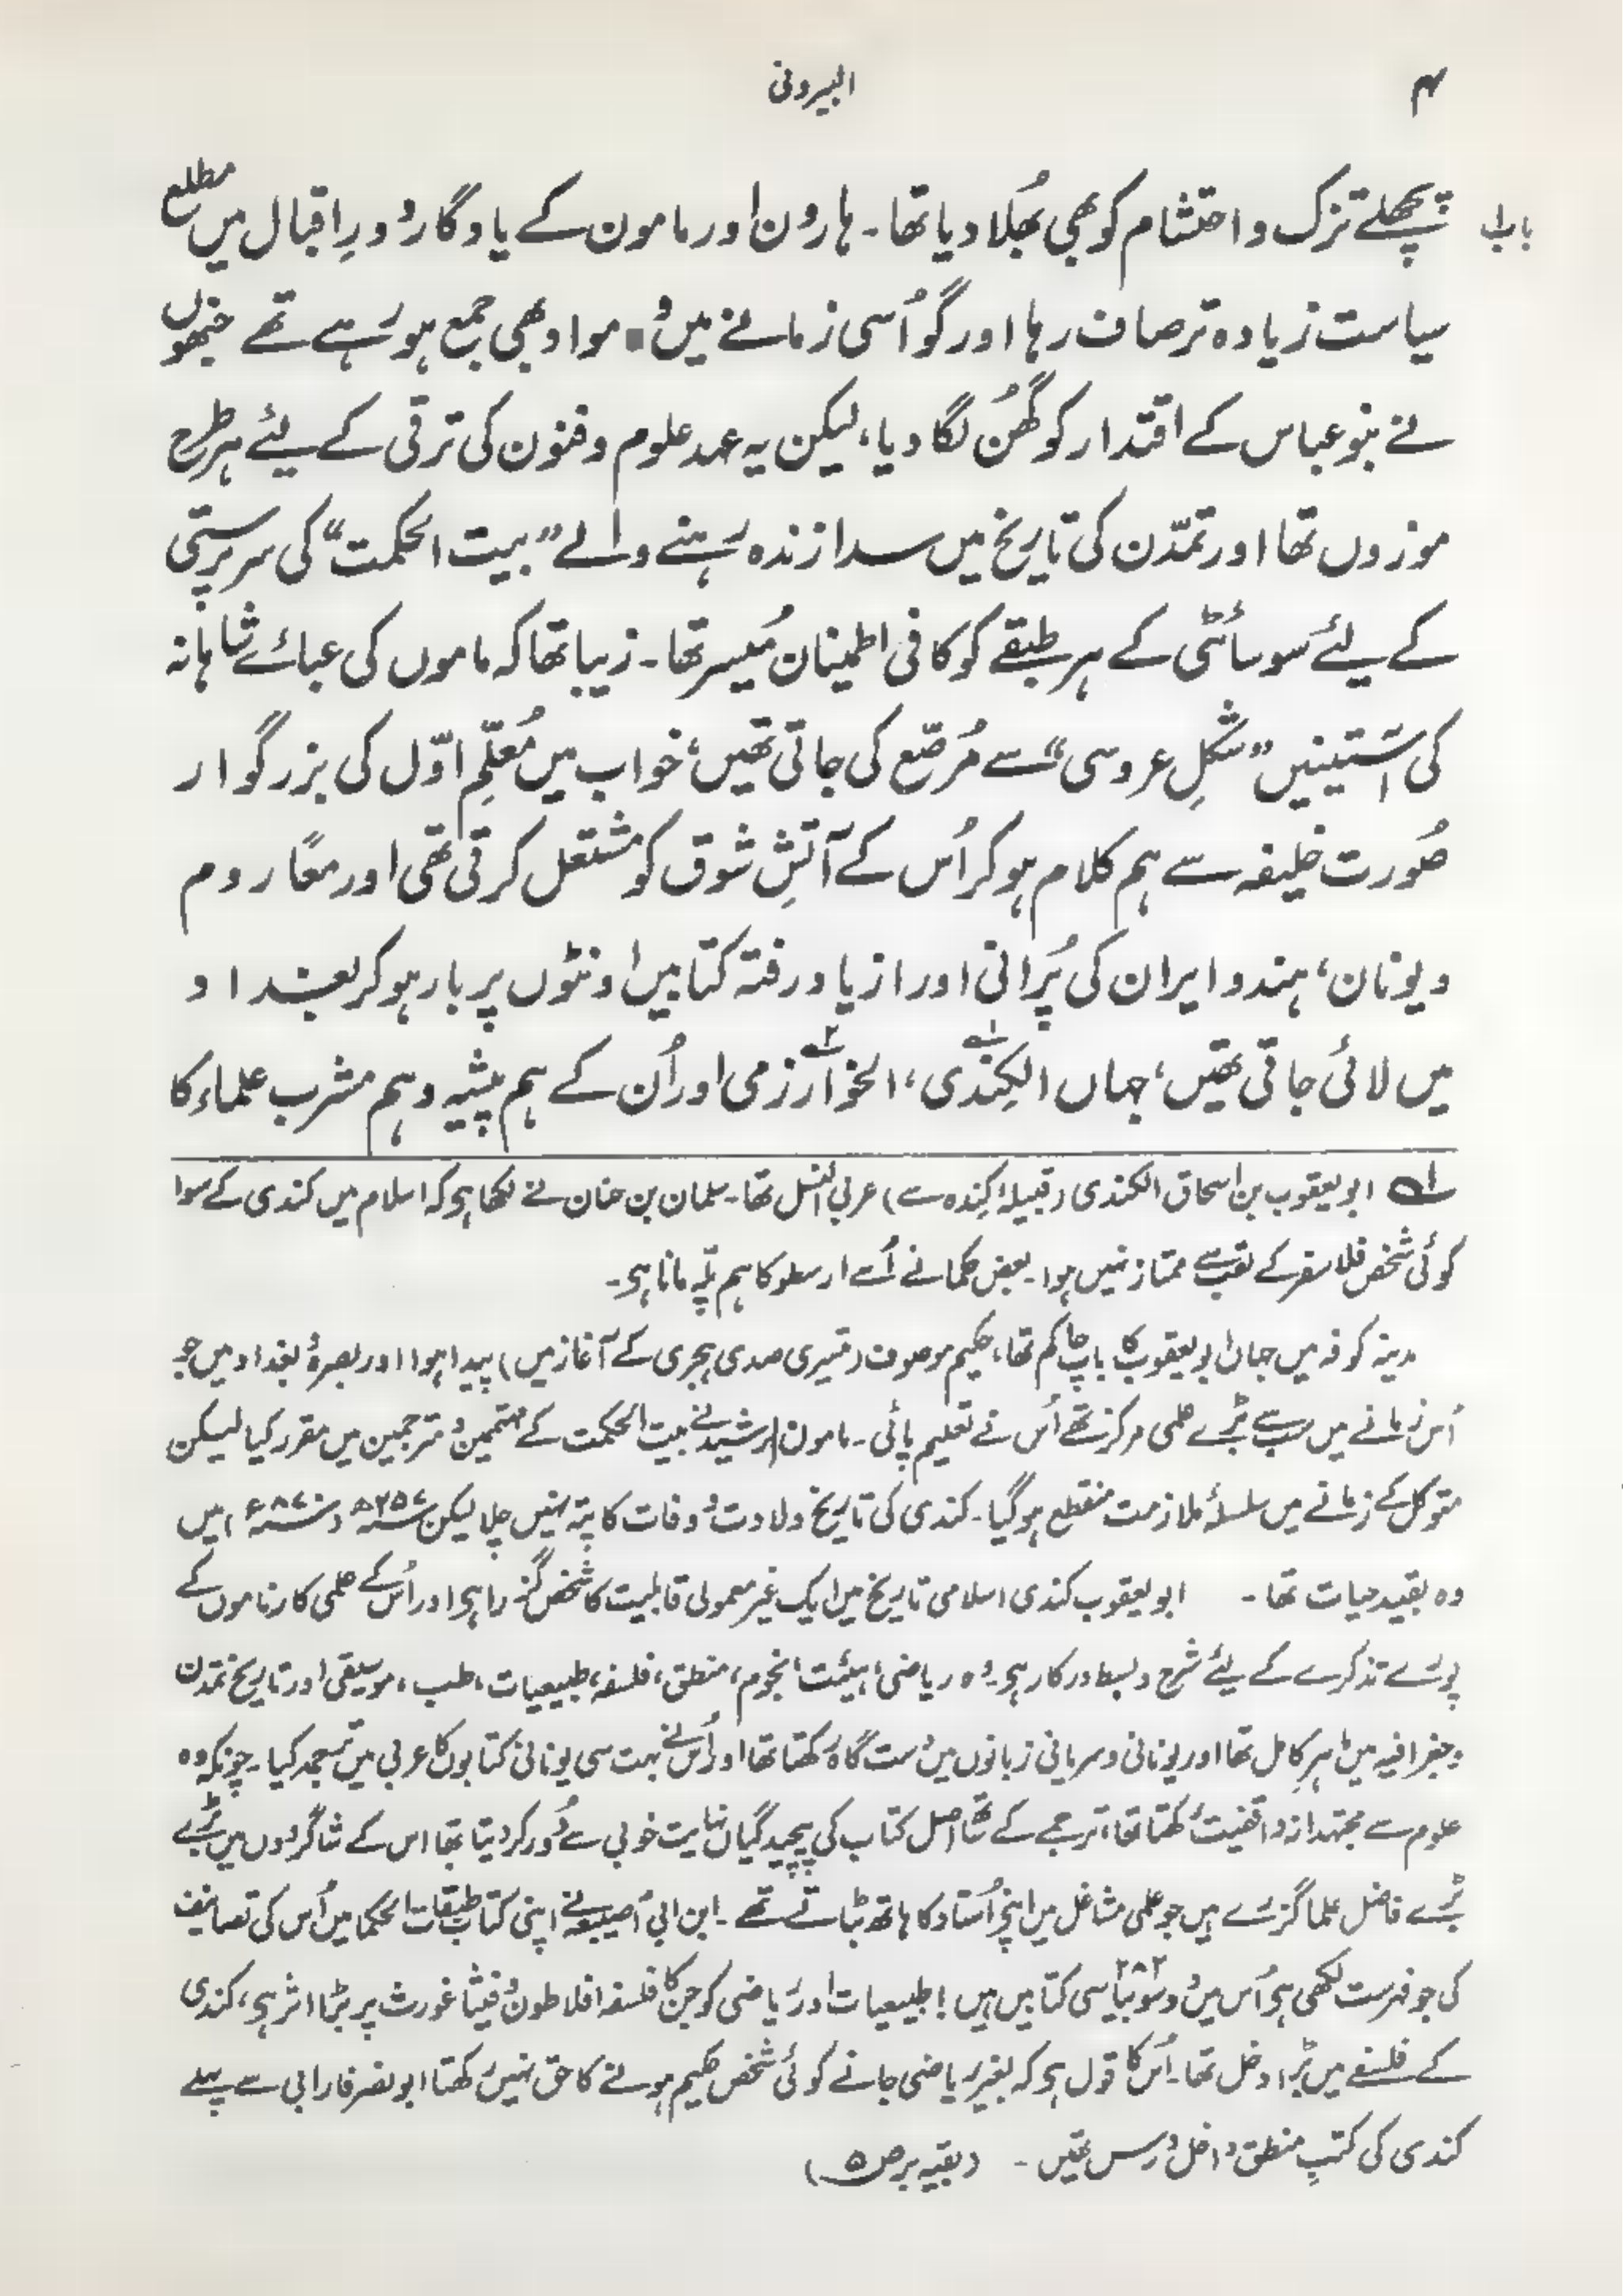 ۴
البیرونی
باب ۱
پچھلے تزک و احتشام کو بھی بُھلا دیا تھا۔ ہارون اور مامون کے یادگار دورِ اقبال میں مطلع
سیاست زیادہ تر صاف رہا اور گو اُسی زمانے میں وُہ مواد بھی جمع ہو رہے تھے جنھوں
نے بنو عباس کے اقتدار کو گُھن لگا دیا، لیکن یہ عہد علوم و فنون کی ترقی کے لیئے ہر طرح
موزوں تھا اور تمدّن کی تاریخ میں سدا زندہ رہنے والے ”بیت الحکمت“ کی سرپرستی
کے لیئے سوسائٹی کے ہر طبقے کو کافی اطمینان مُیسر تھا۔ زیبا تھا کہ ماموں کی عبائے شاہانہ
کی آستینیں ”شکلِ عروسی“ سے مُرصّع کی جاتی تھیں، خواب میں مُعلّمِ اوّل کی بزرگوار
صُورت خلیفہ سے ہم کلام ہو کر اُس کے آتشِ شوق کو مشتعل کرتی تھی اور معًا روم
و یونان، ہند و ایران کی پُرانی اور از یاد رفتہ کتابیں اونٹوں پر بار ہو کر بغداد
میں لائی جاتی تھیں، جہاں الکِندی۱، الخوارزمی۲ اور اُن کے ہم پیشہ و ہم مشرب علماء کا
۱ ابو یعقوب بن اسحاق الکندی (قبیلۂ کِندہ سے) عربی النسل تھا۔ سلمان بن حنان نے لکھا ہی کہ اسلام میں کندی کے سوا
کوئی شخص فلاسفر کے لقب سے ممتاز نہیں ہوا۔ بعض حکما نے اُسے ارسطو کا ہم پلّہ مانا ہی۔
مدینہ کوفہ میں جہاں ابو یعقوب کا باپ حاکم تھا، حکیم موصوف (تیسری صدی ہجری کے آغاز میں) پیدا ہوا اور بصرہ و بغداد میں جو
اُس زمانے میں سب سے بڑے علمی مرکز تھے اُس نے تعلیم پائی۔ مامون الرشید نے بیت الحکمت کے مہتممین و مترجمین میں مقرر کیا لیکن
متوکل کے زمانے میں سلسلۂ ملازمت منقطع ہو گیا۔ کندی کی تاریخ ولادت و وفات کا پتہ نہیں چلا لیکن میں
وہ بقید حیات تھا۔ ابو یعقوب کندی اسلامی تاریخ میں ایک غیر معمولی قابلیت کا شخص گزرا ہی اور اُس کے علمی کارناموں کے
پورے تذکرے کے لیئے شرح و بسط درکار ہی۔ وہ ریاضی، ہیئت، نجوم، منطق، فلسفہ، طبیعیات، طب، موسیقی اور تاریخ تمدن
و جغرافیہ میں ماہرِ کامل تھا اور یونانی و سریانی زبانوں میں دست گاہ رکھتا تھا اور اُس نے بہت سی یونانی کتابوں کا عربی میں ترجمہ کیا۔ چونکہ وہ
علوم سے مجتہدانہ واقفیت رکھتا تھا، ترجمے کے ساتھ اصل کتاب کی پیچیدگیاں نہایت خوبی سے دُور کر دیتا تھا اس کے شاگردوں میں بڑے
بڑے فاضل علما گزرے ہیں جو علمی مشاغل میں اپنے اُستاد کا ہاتھ بٹاتے تھے۔ ابن ابی اُصیبعہ نے اپنی کتاب طبقات الحکما میں اُس کی تصانیف
کی جو فہرست لکھی ہی اُس میں دو سو بیاسی ۲۸۲ کتابیں ہیں! طبیعیات اور ریاضی کو جن کا فلسفہ افلاطون و فیثاغورث پر بڑا اثر ہی، کندی
کے فلسفے میں بڑا دخل تھا۔ اُس کا قول ہی کہ بغیر ریاضی جانے کوئی شخص حکیم ہونے کا حق نہیں رکھتا ابو نصر فارابی سے پہلے
کندی کی کتبِ منطق داخل درس تھیں۔ (بقیہ بر ص ۵)